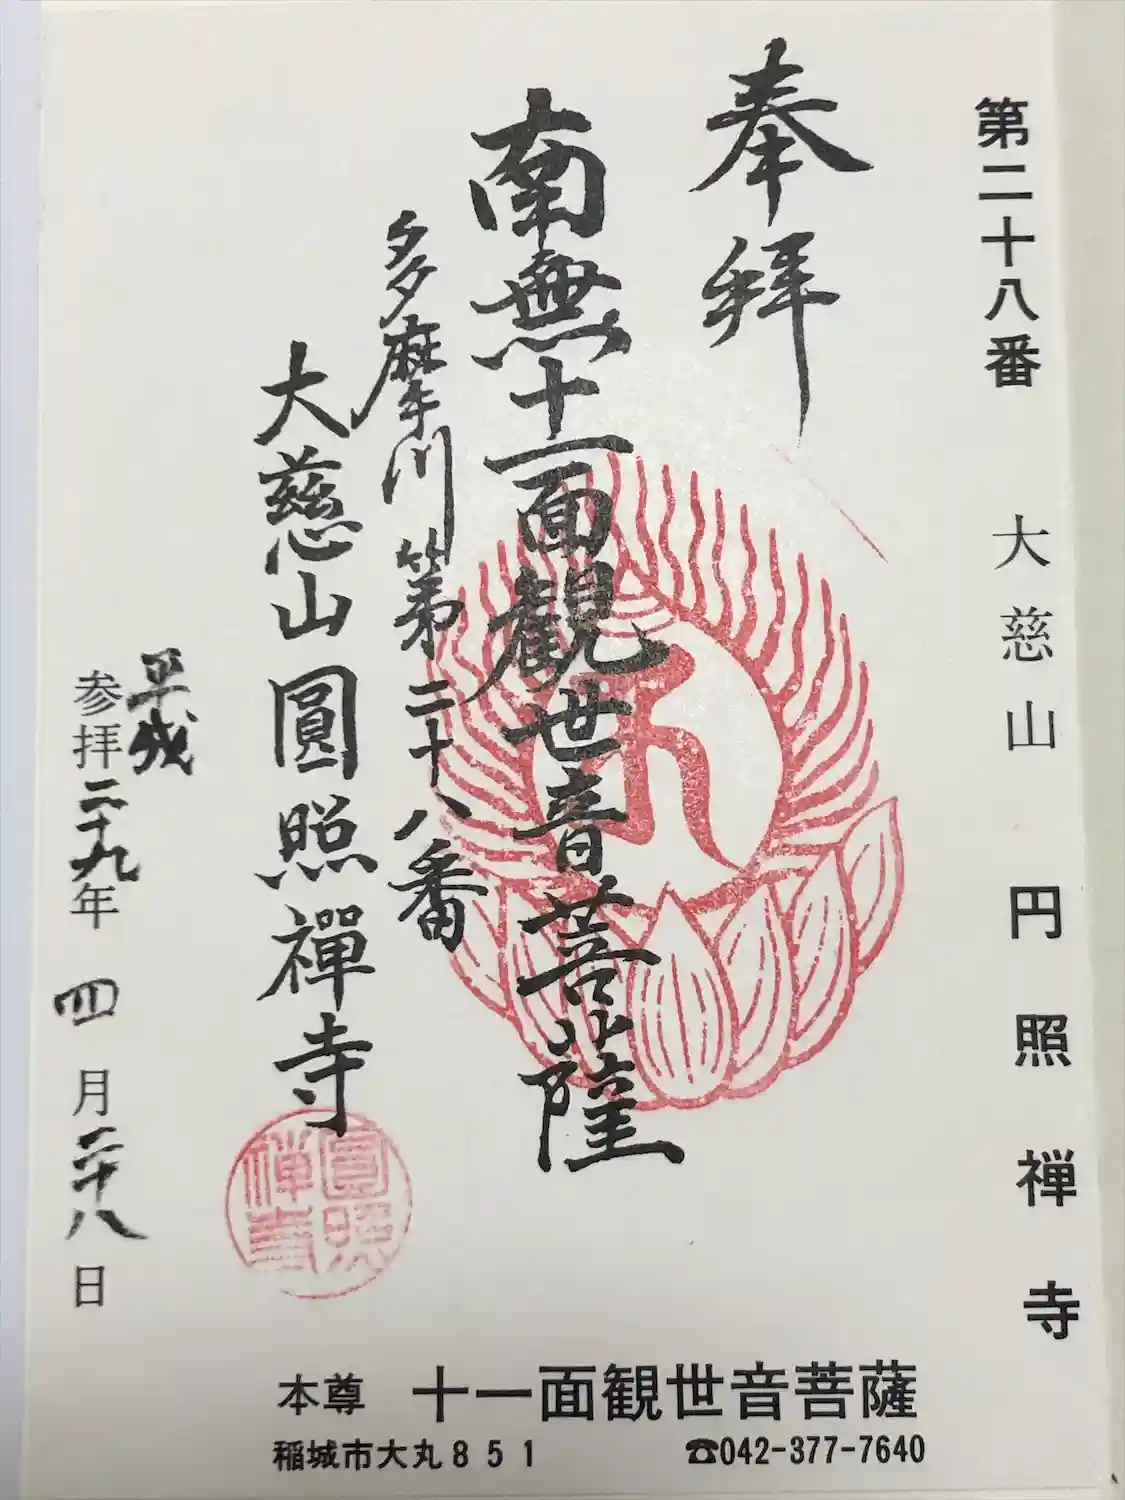 第二十八番 大慈山 円照禅寺
奉拝
南無十一面観世音菩薩
多摩川第二十八番
大慈山圓照禪寺
圓照
禅寺
平成
参拝二十九年 四月二十八日
本尊 十一面観世音菩薩
稲城市大丸851 ☎042-377-7640